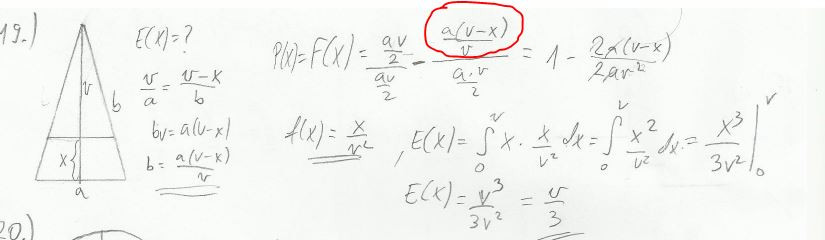 19.)
E(X)=?
v/a = v-x/b
bv=a(v-x)
b= a(v-x)/v
v
b
x
a
P(X)=F(X)= (av/2)/(av/2) - (a(v-x)/v)/(a·v/2) = 1 - 2a(v-x)/2av²
f(x)= x/v² , E(X)= ∫₀ᵛ x · x/v² dx= ∫₀ᵛ x²/v² dx= x³/3v² |₀ᵛ
E(X)= v³/3v² = v/3
20.)